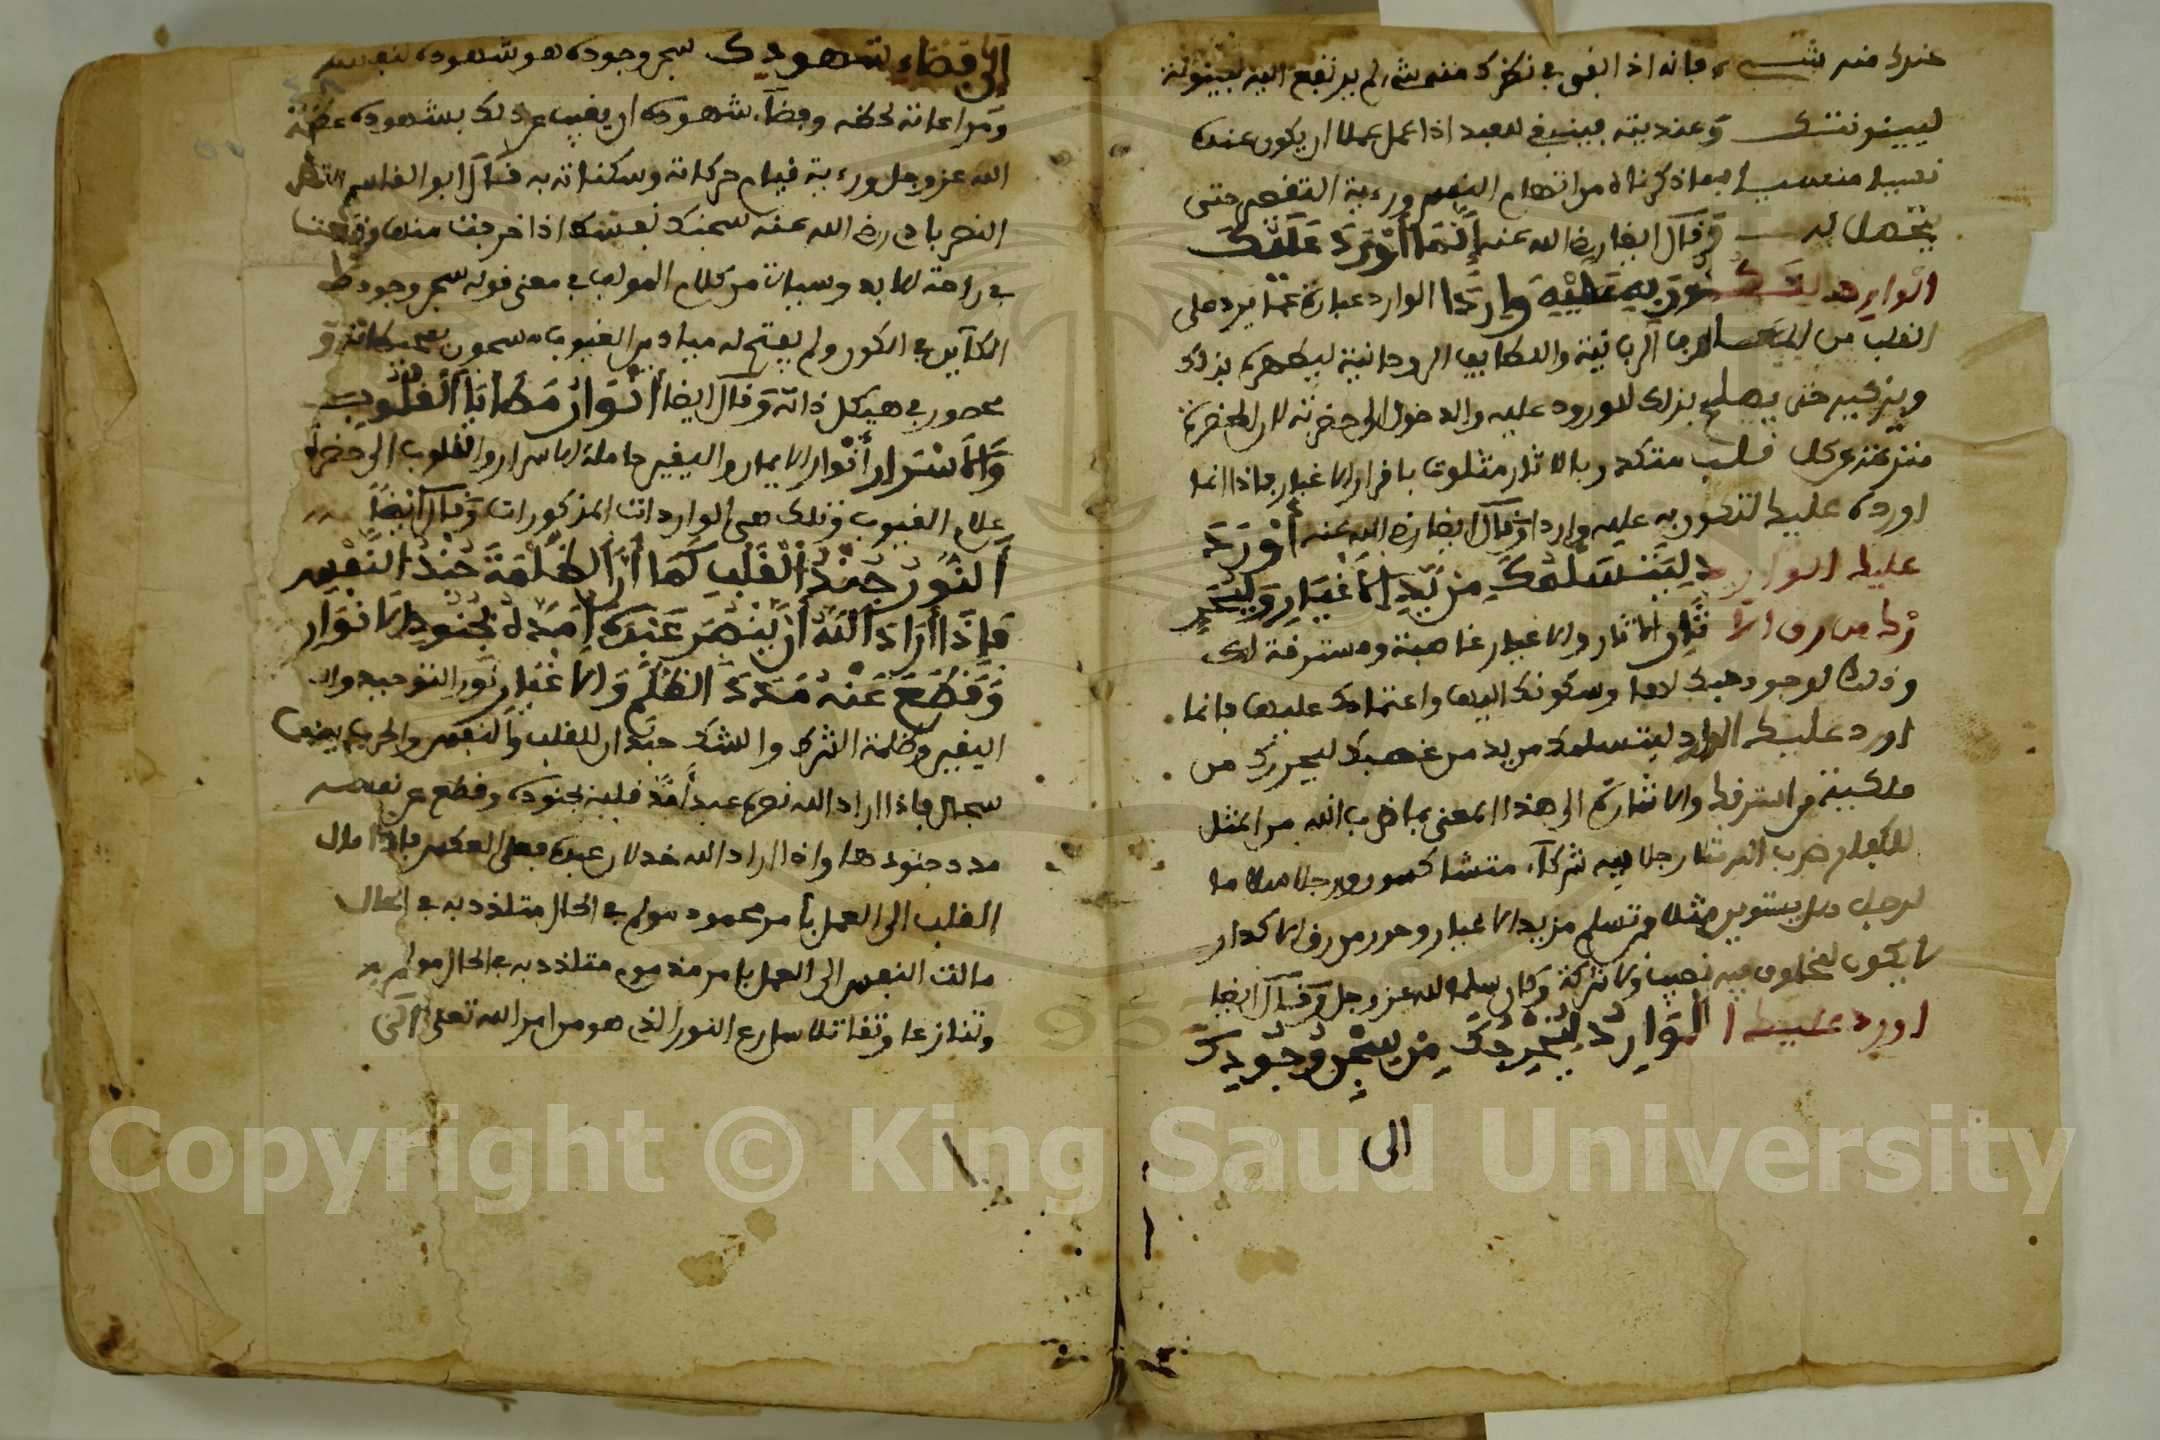 عندك منه شيء فإنه اذا بقي في نظرك منه شيء لم يرتفع اليه لبينونته
لبينونتك وعنديته فينبغي للعبد اذا عمل عملا ان يكون عنده
نسيا منسيا بما ذكرناه من اتهام النفس ورءية التقصير حتى
يحصل له وقال ايضا رضي الله عنه إِنَّمَا أَوْرَدَ عَلَيْكَ
الوارد لتكون به عليه واردا الوارد عبارة عما يرد على
القلب من المعارف الربانية واللطايف الروحانية ليطهره بذلك
ويزكيه حتى يصلح بذلك للورود عليه والدخول الى حضرته لان الحضرة
منزهة عن كل قلب متكدر بالاثار متلوث باقذار الاغيار فاذا انما
اورده عليك لتكون به عليه واردا وقال ايضا رضي الله عنه أَوْرَدَ
عليك الوارد ليتسلمك من يد الاغيار وليحر
رك من رق الآثار الاثار والاغيار غاصبة ومسترقة لك
وذلك لوجود حبك لها وسكونك اليها واعتمادك عليها فانما
اورد عليك الوارد ليتسلمك من يد من غصبك ليحررك من
ملكية من استرقك والاشارة الى هذا المعنى بما ضرب الله من المثل
للكفار ضرب الله مثلا رجلا فيه شركاء متشاكسون ورجلا سلما
لرجل هل يستويان مثلا فمن سلم من يد الاغيار وحرر من رق الاكدار
لا يكون لمخلوق فيه نصيب ولا شركة وكان سلما لله عز وجل وقال ايضا
اورد عليك الْوَارِدَ لِيُخْرِجَكَ مِن سِجْنِ وُجُودِكَ
الى
إلى فضاء شهودك سجن وجوده هو شهوده لنفسه
ومراعاته لحظه وفضاء شهوده ان يغيب عن ذلك بشهوده عظمة
الله عز وجل ورءية قيام حركاته وسكناته به قال ابو القاسم
النصرباذي رضي الله عنه سجنك نفسك اذا خرجت منها وقعت
في راحة الابد وسياتي من كلام المولف في معنى قوله سجن وجودك
الكآين في الكون ولم يفتح له ميادين الغيوب مسجون بمحيطاته و
محصور في هيكل ذاته وقال ايضا الأنْوَارُ مَطَايَا الْقُلُوبِ
وَالأَسْرَارِ أنوار الايمان واليقين حاملة للاسرار والقلوب الى حضرة
علام الغيوب وتلك هي الواردات المذكورات وقال أيضاً
النُّورُ جُنْدُ الْقَلْبِ كَمَا أَنَّ الظُّلْمَةَ جُنْدُ النَّفْسِ
فَإِذَا أَرَادَ اللَّهُ أَنْ يَنْصُرَ عَبْدَهُ أَمَدَّهُ بِجُنُودِ الأَنْوَارِ
وَقَطَعَ عَنْهُ مَدَدَ الظُّلَمِ وَالأَغْيَارِ نور التوحيد و
اليقين وظلمة الشرك والشك جندان للقلب والنفس والحرب بينهما
سجال فاذا اراد الله نصرة عبده أمد قلبه بجنوده وقطع عن نفسه
مدد جنودها واذا اراد الله خذلان عبده فعلى العكس فاذا مال
القلب الى العمل بأمر محمود مولم في الحال متلذذ به في المآل
مالت النفس الى العمل بامر مذموم متلذذ به في الحال مولم
وتنازعا وتقاتلا سارع النور الذي هو من امر الله تعلى